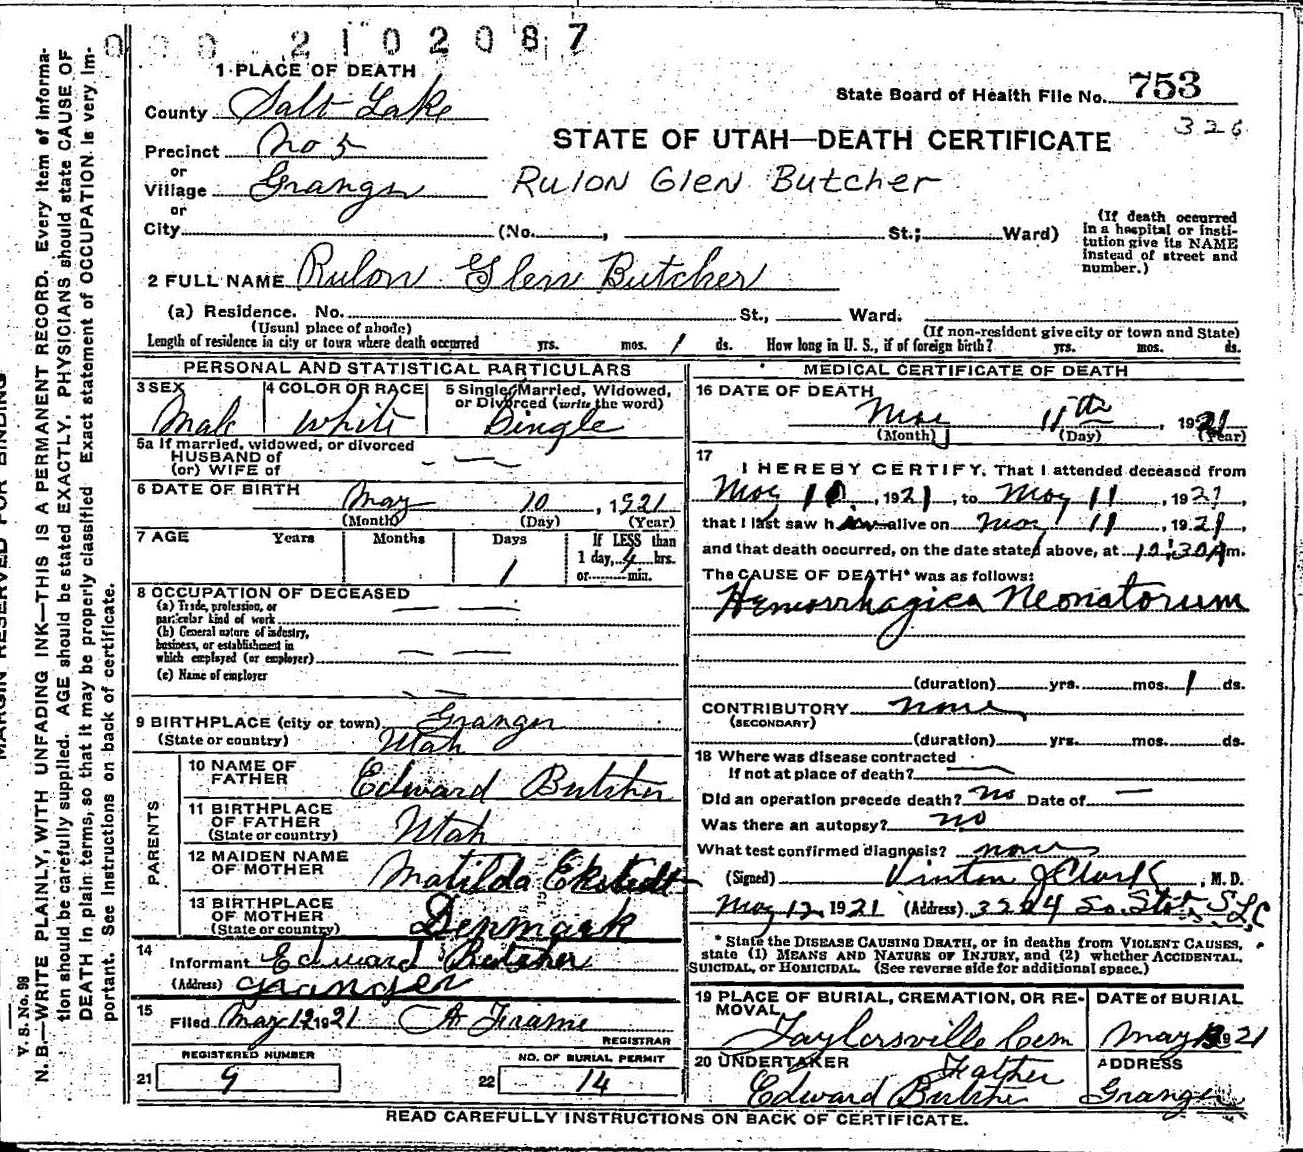 0 0 0 2 1 0 2 0 8 7
1 PLACE OF DEATH
County Salt Lake
State Board of Health File No. 753
326
Precinct No 5
STATE OF UTAH—DEATH CERTIFICATE
or
Village Granger
Rulon Glen Butcher
or
City (No. , St.; Ward)
(If death occurred in a hospital or institution give its NAME instead of street and number.)
2 FULL NAME Rulon Glen Butcher
(a) Residence. No. St., Ward.
(Usual place of abode)
(If non-resident give city or town and State)
Length of residence in city or town where death occurred yrs. mos. 1 ds. How long in U. S., if of foreign birth? yrs. mos. ds.
PERSONAL AND STATISTICAL PARTICULARS
3 SEX
Male
4 COLOR OR RACE
White
5 Single, Married, Widowed, or Divorced (write the word)
Single
5a If married, widowed, or divorced
HUSBAND of
(or) WIFE of
6 DATE OF BIRTH
May 10, 1921
(Month) (Day) (Year)
7 AGE Years Months Days If LESS than
1 1 day, 4 hrs.
or min.
8 OCCUPATION OF DECEASED
(a) Trade, profession, or
particular kind of work
(b) General nature of industry,
business, or establishment in
which employed (or employer)
(c) Name of employer
9 BIRTHPLACE (city or town) Granger
(State or country) Utah
PARENTS
10 NAME OF FATHER Edward Butcher
11 BIRTHPLACE OF FATHER (State or country) Utah
12 MAIDEN NAME OF MOTHER Matilda Ekstedt
13 BIRTHPLACE OF MOTHER (State or country) Denmark
14
Informant Edward Butcher
(Address) Granger
15
Filed May 12 1921 A Frame
REGISTRAR
REGISTERED NUMBER
21 9
NO. OF BURIAL PERMIT
22 14
MEDICAL CERTIFICATE OF DEATH
16 DATE OF DEATH
May 11th, 1921
(Month) (Day) (Year)
17
I HEREBY CERTIFY, That I attended deceased from
May 10, 1921, to May 11, 1921,
that I last saw him alive on May 11, 1921,
and that death occurred, on the date stated above, at 12:30 A m.
The CAUSE OF DEATH* was as follows:
Hemorrhagica Neonatorum
(duration) yrs. mos. 1 ds.
CONTRIBUTORY none
(SECONDARY)
(duration) yrs. mos. ds.
18 Where was disease contracted
If not at place of death?
Did an operation precede death? no Date of
Was there an autopsy? no
What test confirmed diagnosis? none
(Signed) Vinton J Clark, M. D.
May 12, 1921 (Address) So. State S. L. C
* State the DISEASE CAUSING DEATH, or in deaths from VIOLENT CAUSES,
state (1) MEANS AND NATURE OF INJURY, and (2) whether ACCIDENTAL,
SUICIDAL, or HOMICIDAL. (See reverse side for additional space.)
19 PLACE OF BURIAL, CREMATION, OR REMOVAL
Taylorsville Cem
DATE of BURIAL
May 1921
20 UNDERTAKER
Father
Edward Butcher
ADDRESS
Granger
READ CAREFULLY INSTRUCTIONS ON BACK OF CERTIFICATE.
MARGIN RESERVED FOR BINDING
V. S. No. 98
N. B.—WRITE PLAINLY, WITH UNFADING INK—THIS IS A PERMANENT RECORD. Every item of informa-
tion should be carefully supplied. AGE should be stated EXACTLY. PHYSICIANS should state CAUSE OF
DEATH in plain terms, so that it may be properly classified. Exact statement of OCCUPATION is very im-
portant. See instructions on back of certificate.